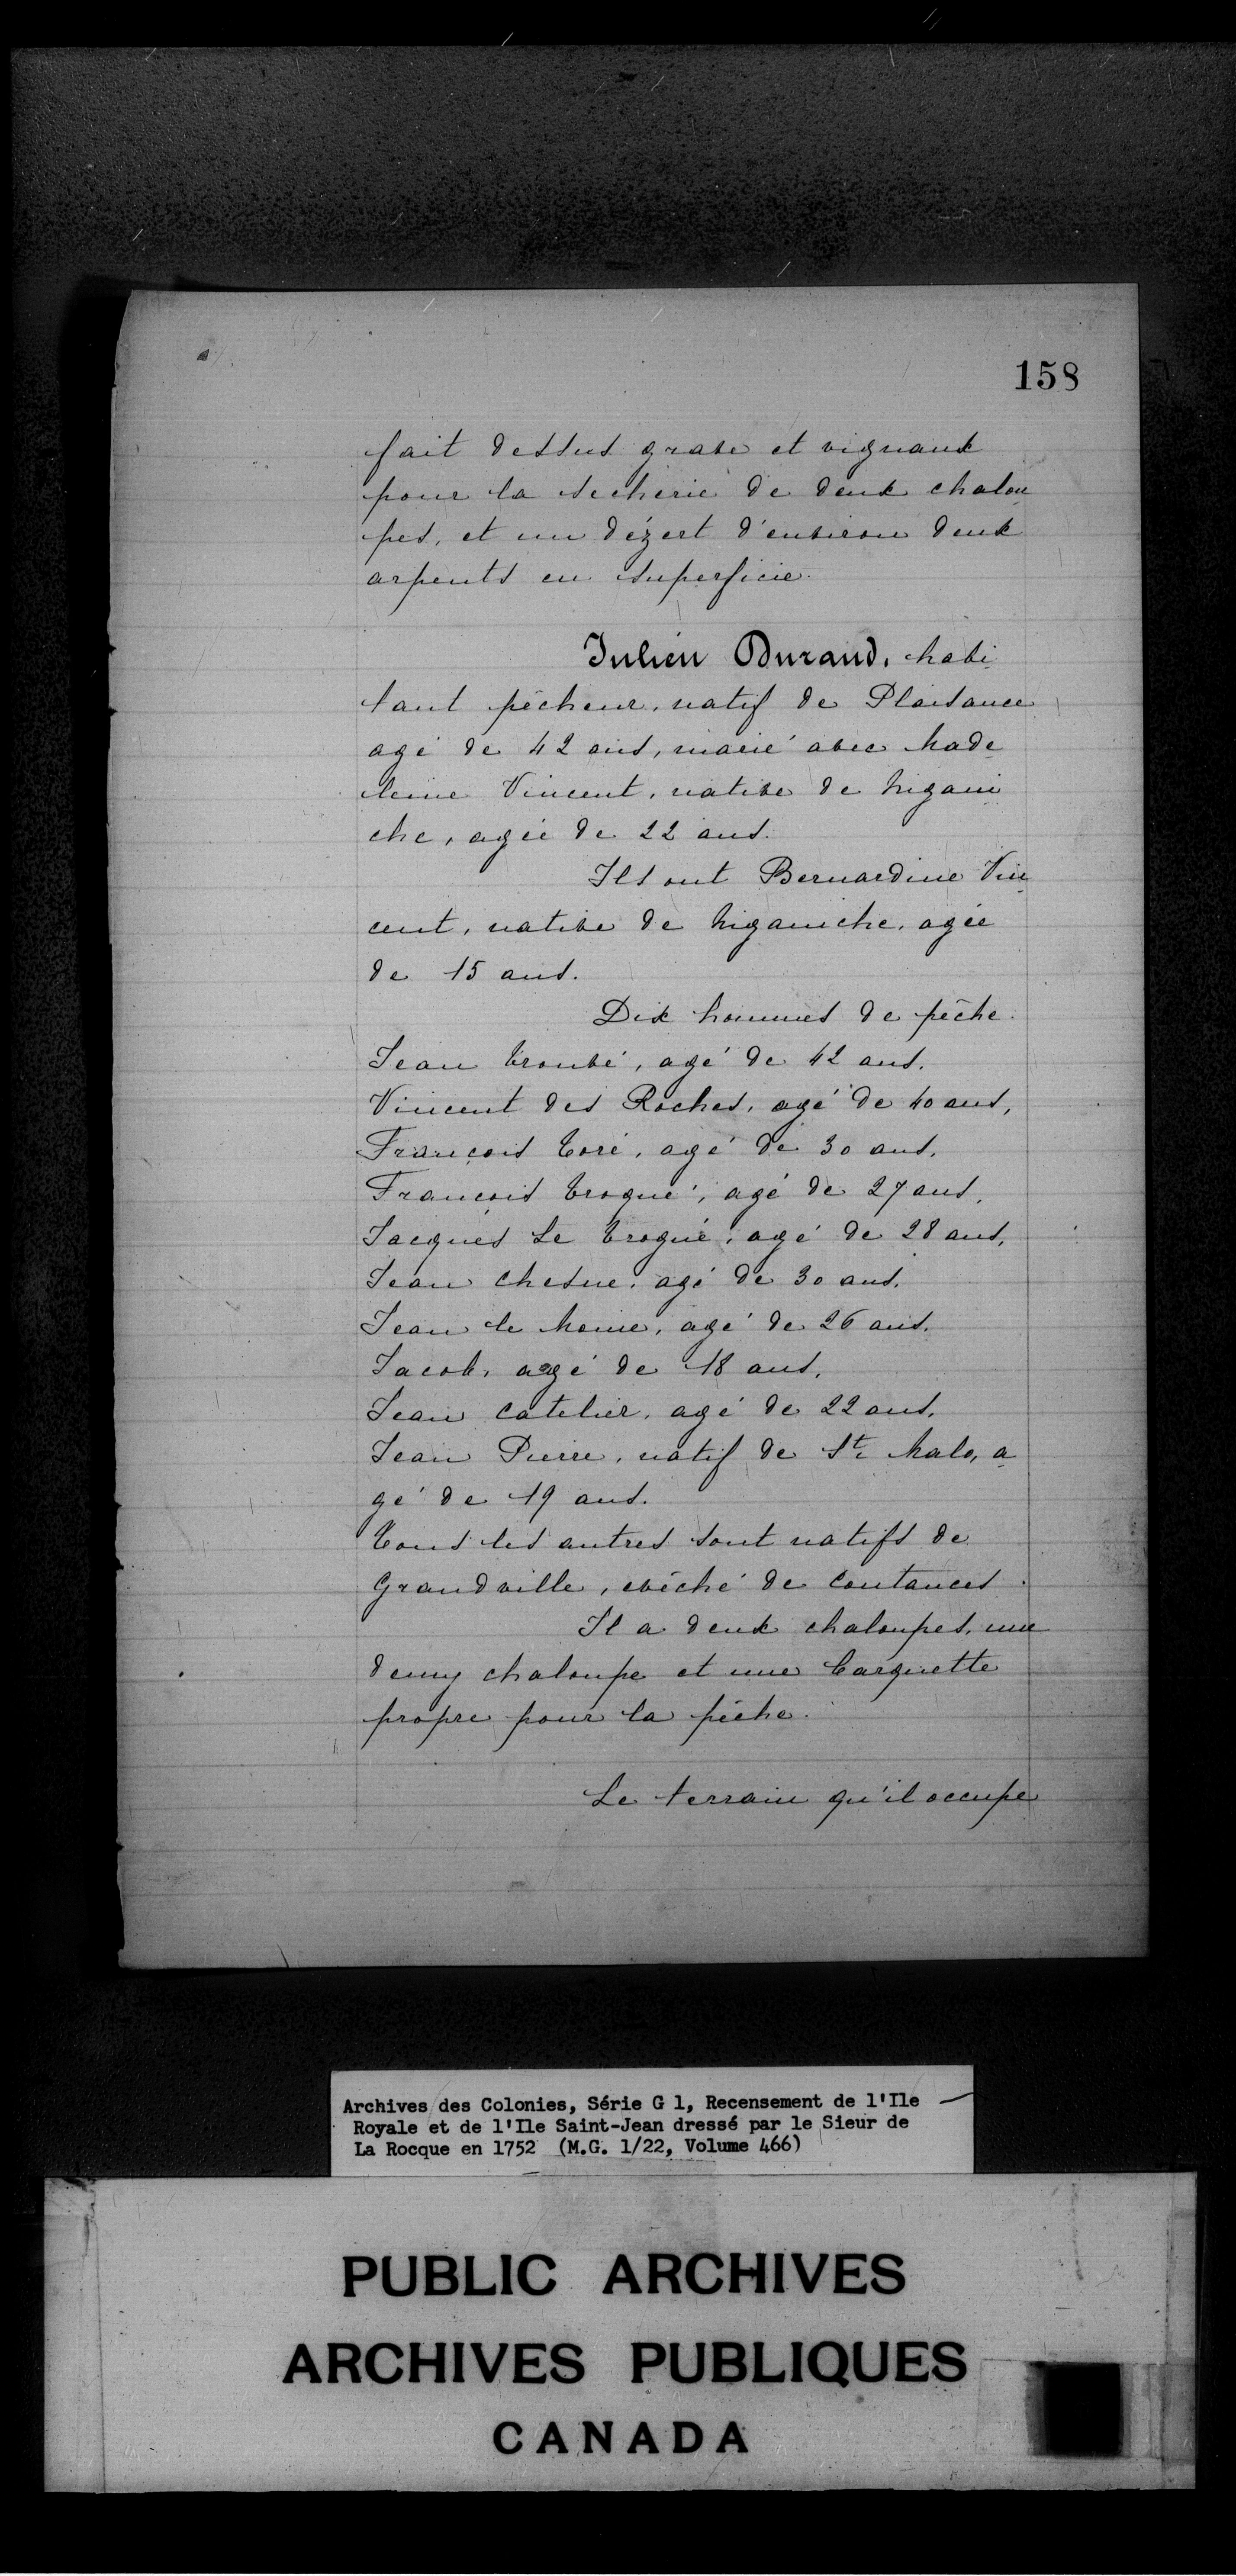 158
fait dessus grave et vignaux
pour la secherie de deux chalou
pes, et un dézert d'environ deux
arpents en superficie.
Julien Durand, habi
tant pêcheur, natif de Plaisance
agé de 42 ans, marié avec Made
leine Vincent, native de Niganiche
che, agée de 22 ans.
Ils ont Bernardine Vin
cent, native de Niganiche, agée
de 15 ans.
Dix hommes de pêche.
Jean Trouvé, agé de 42 ans,
Vincent des Roches, agé de 40 ans,
François Toré, agé de 30 ans,
François Troqué, agé de 27 ans,
Jacques Le Troqué, agé de 28 ans,
Jean Chesne, agé de 30 ans,
Jean le Moine, agé de 26 ans,
Jacob, agé de 18 ans,
Jean Catelier, agé de 22 ans,
Jean Pierre, natif de St. Malo, a
gé de 19 ans.
Tous les autres sont natifs de
Grandville, evêché de Coutances.
Il a deux chaloupes, une
demy chaloupe et une barquette
propre pour la pêche.
Le terrain qu'il occupe
Archives des Colonies, Série G 1, Recensement de l'Ile
Royale et de l'Ile Saint-Jean dressé par le Sieur de
La Rocque en 1752 (M.G. 1/22, Volume 466)
PUBLIC ARCHIVES
ARCHIVES PUBLIQUES
CANADA